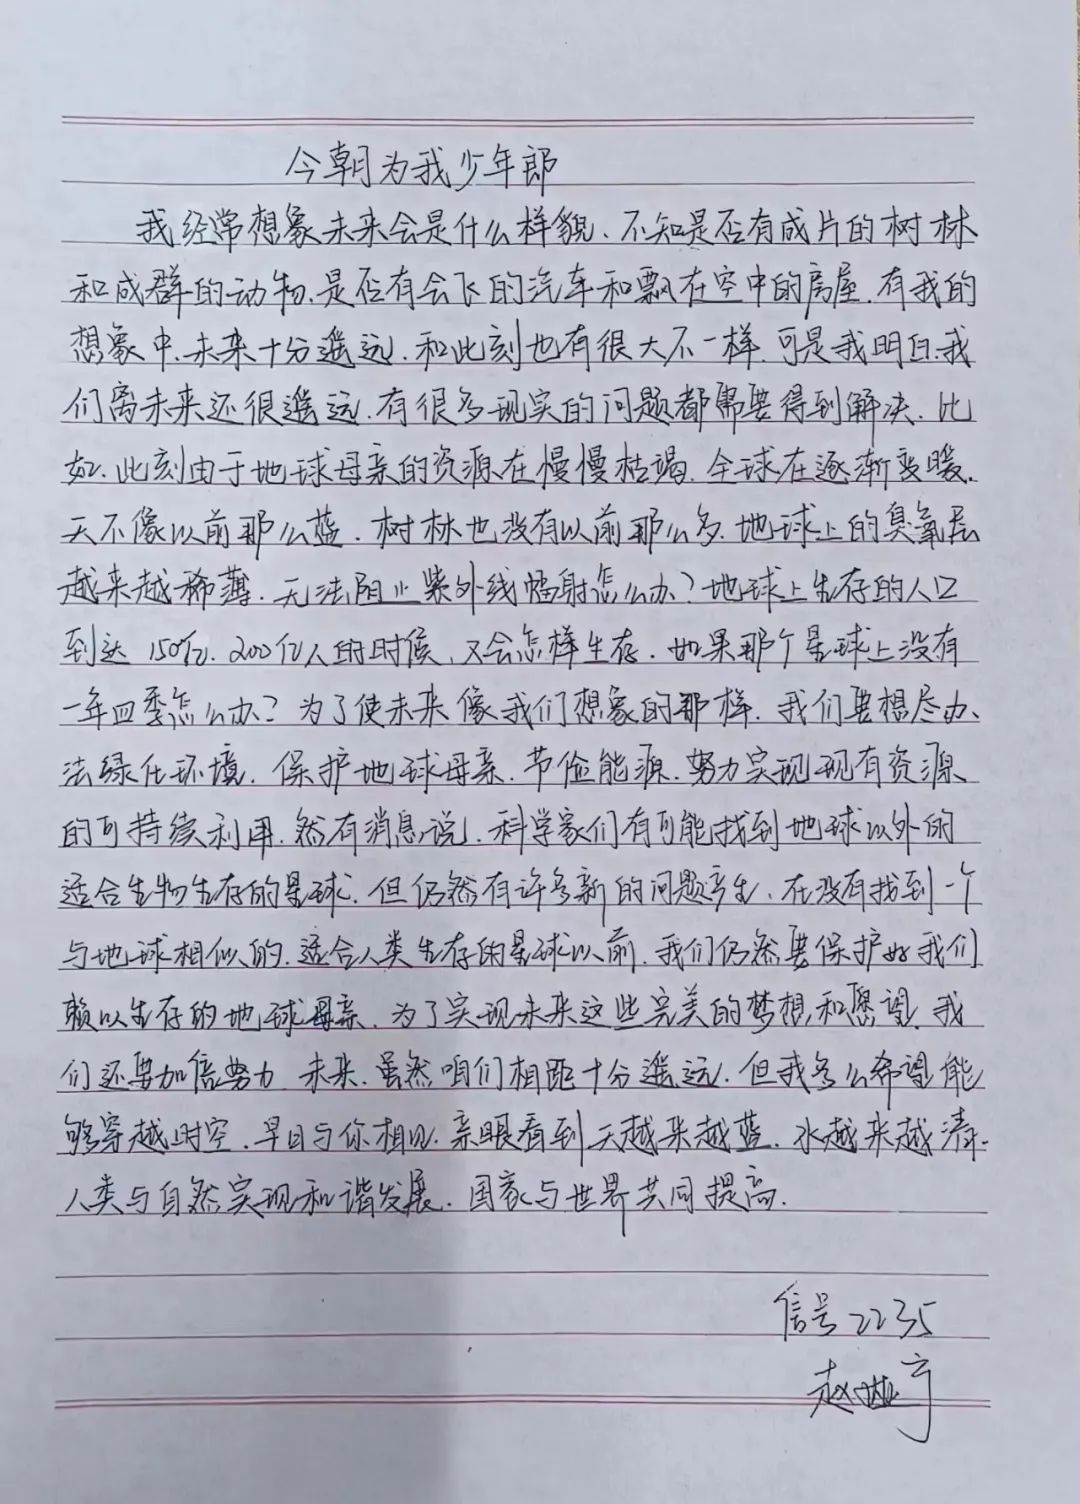 今朝为我少年郎
我经常想象未来会是什么样貌、不知是否有成片的树林
和成群的动物、是否有会飞的汽车和飘在空中的房屋.有我的
想象中.未来十分遥远.和此刻也有很大不一样.可是我明白.我
们离未来还很遥远.有很多现实的问题都需要得到解决.比
如.此刻由于地球母亲的资源在慢慢枯竭.全球在逐渐变暖.
天不像以前那么蓝.树林也没有以前那么多.地球上的臭氧层
越来越稀薄.无法阻止紫外线幅射怎么办?地球上生存的人口
到达150亿.200亿人的时候、又会怎样生存.如果那个星球上没有
一年四季怎么办?为了使未来像我们想象的那样.我们要想尽办、
法绿化环境.保护地球母亲.节俭能源.努力实现现有资源
的可持续利用.然有消息说.科学家们有可能找到地球以外的
适合生物生存的星球.但仍然有许多新的问题产生、在没有找到一个
与地球相似的.适合人类生存的星球以前.我们仍然要保护好我们
赖以生存的地球母亲.为了实现未来这些完美的梦想和愿望.我
们还要加倍努力 未来.虽然咱们相距十分遥远.但我多么希望能
够穿越时空.早日与你相见.亲眼看到天越来越蓝.水越来越清.
人类与自然实现和谐发展.国家与世界共同提高.
信号2235
赵 宁